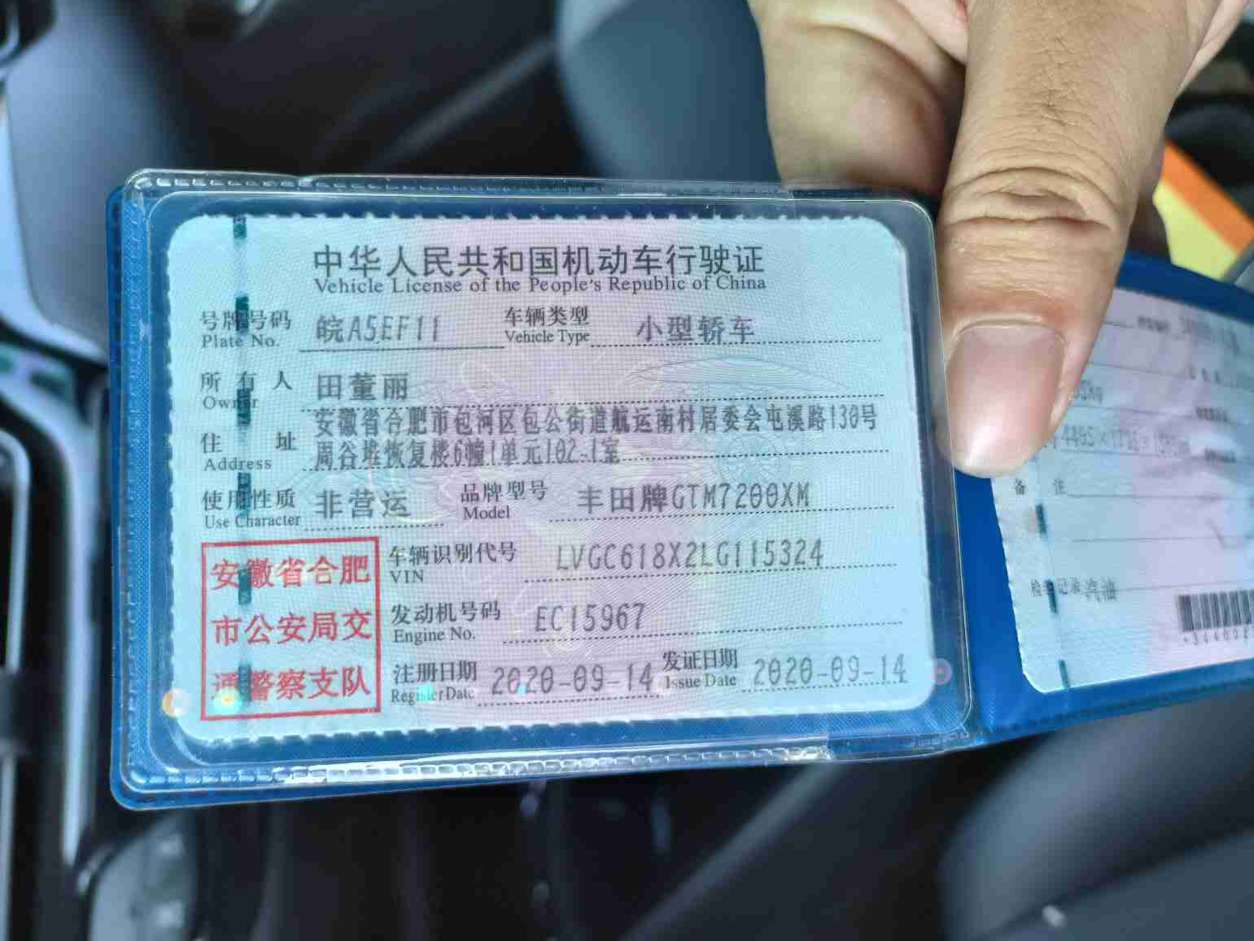 中华人民共和国机动车行驶证
Vehicle License of the People's Republic of China
号牌号码 皖A5EF11 车辆类型 小型轿车
Plate No. Vehicle Type
所有人 田董丽
Owner
住址 安徽省合肥市包河区包公街道航运南村居委会屯溪路130号
Address 周谷堆恢复楼6幢1单元102-1室
使用性质 非营运 品牌型号 丰田牌GTM7200XM
Use Character Model
车辆识别代号 LVGC618X2LG115324
VIN
发动机号码 EC15967
Engine No.
注册日期 2020-09-14 发证日期 2020-09-14
Register Date Issue Date
安徽省合肥
市公安局交
通警察支队
备注
汽油